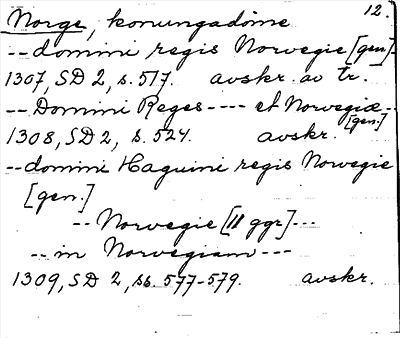 Norge, konungadöme 12.
-- domini regis Norwegie [gen]-
1307, SD 2, s. 517. avskr. av tr.
-- Domini Reges ---- et Norvegiæ --
[gen.]
1308, SD 2, s. 524. avskr.
-- domini Haquini regis Norwegie
[gen.]
-- Norwegie [11 ggr] ---
-- in Norwegiam ---
1309, SD 2, ss. 577-579. avskr.